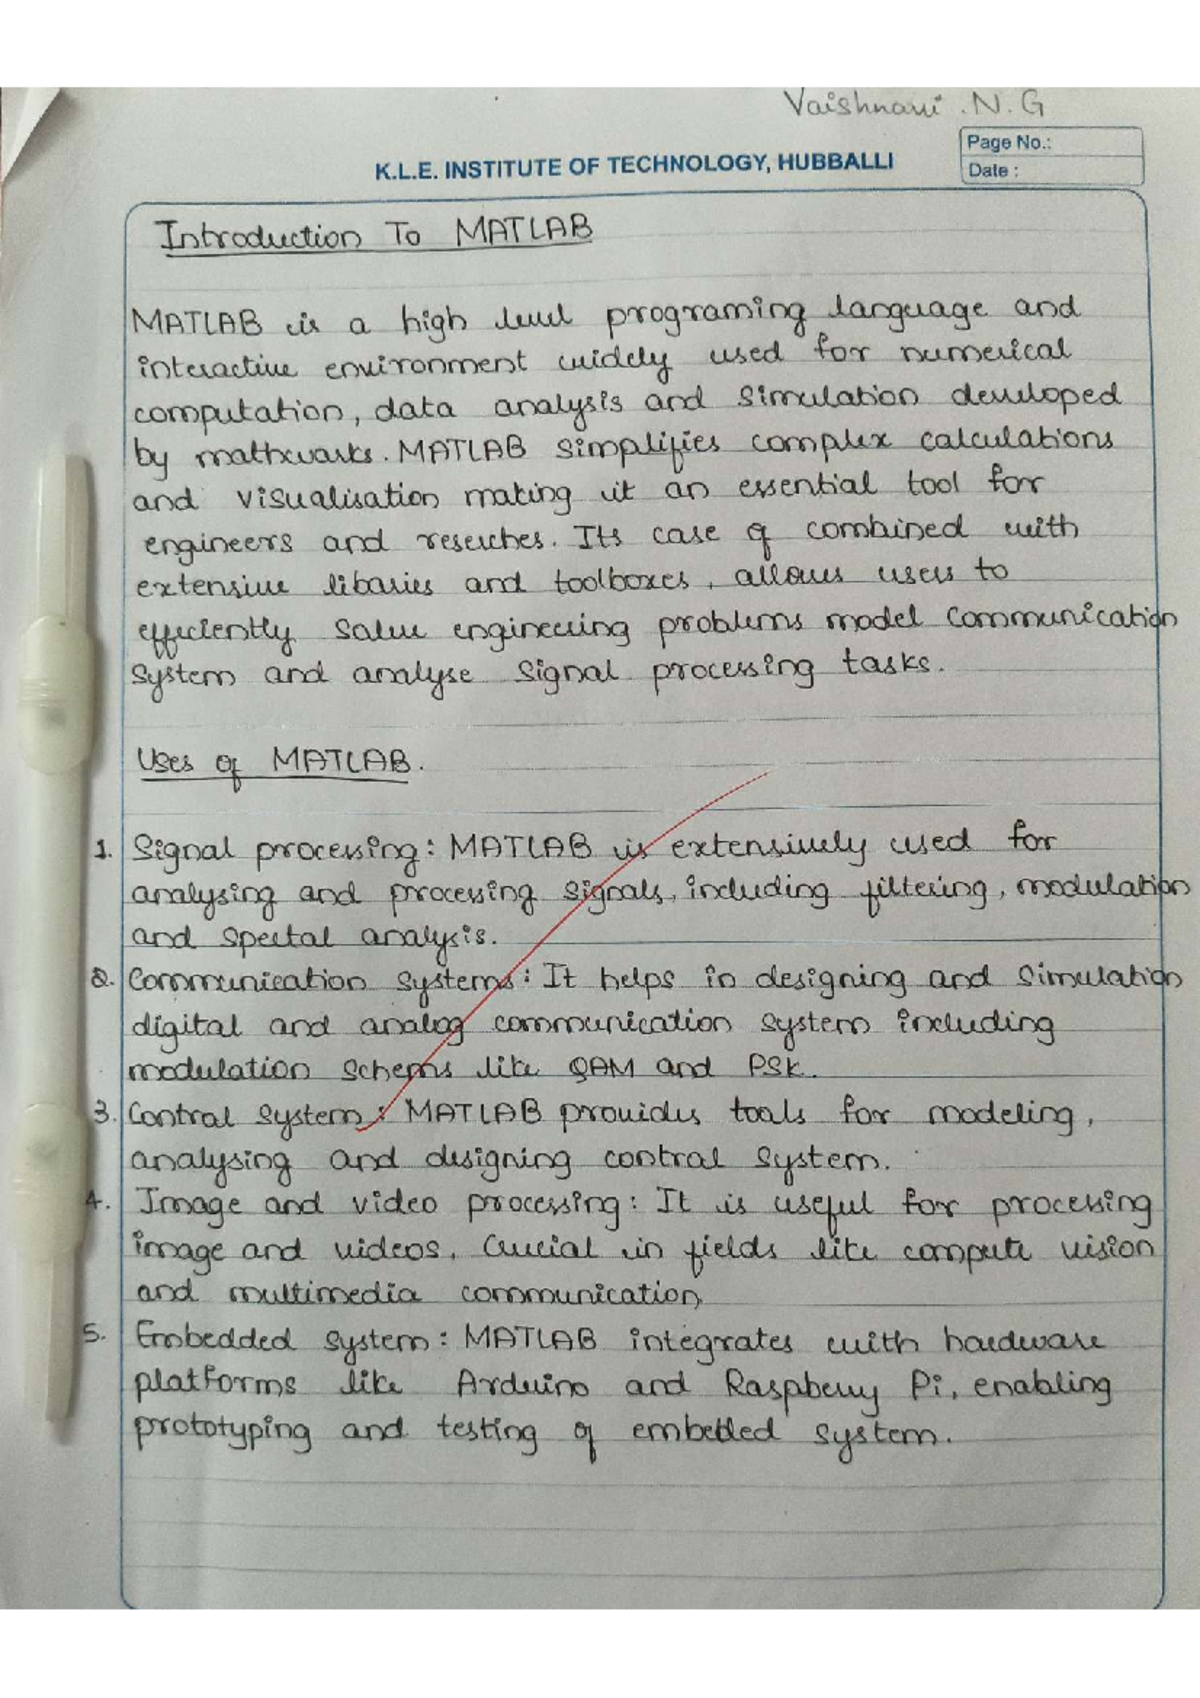 Vaishnavi .N.G
K.L.E. INSTITUTE OF TECHNOLOGY, HUBBALLI
Page No.:
Date :
Introduction To MATLAB
MATLAB is a high level programing language and
interactive environment widely used for numerical
computation, data analysis and simulation developed
by mathworks. MATLAB simplifies complex calculations
and visualisation making it an essential tool for
engineers and reserches. Its case of combined with
extensive libaries and toolboxes, allows users to
efficiently solve engineering problems model communication
system and analyse signal processing tasks.
Uses of MATLAB.
1. Signal processing: MATLAB is extensively used for
analysing and processing signals, including filtering, modulation
and spectal analysis.
2. Communication systems: It helps in designing and simulation
digital and analog communication system including
modulation schems like QAM and PSK.
3. Control system: MATLAB provides tools for modeling,
analysing and designing control system.
4. Image and video processing: It is useful for processing
image and videos, crucial in fields like compute vision
and multimedia communication,
5. Embedded system: MATLAB integrates with hardware
platforms like Arduino and Raspberry Pi, enabling
prototyping and testing of embedded system.